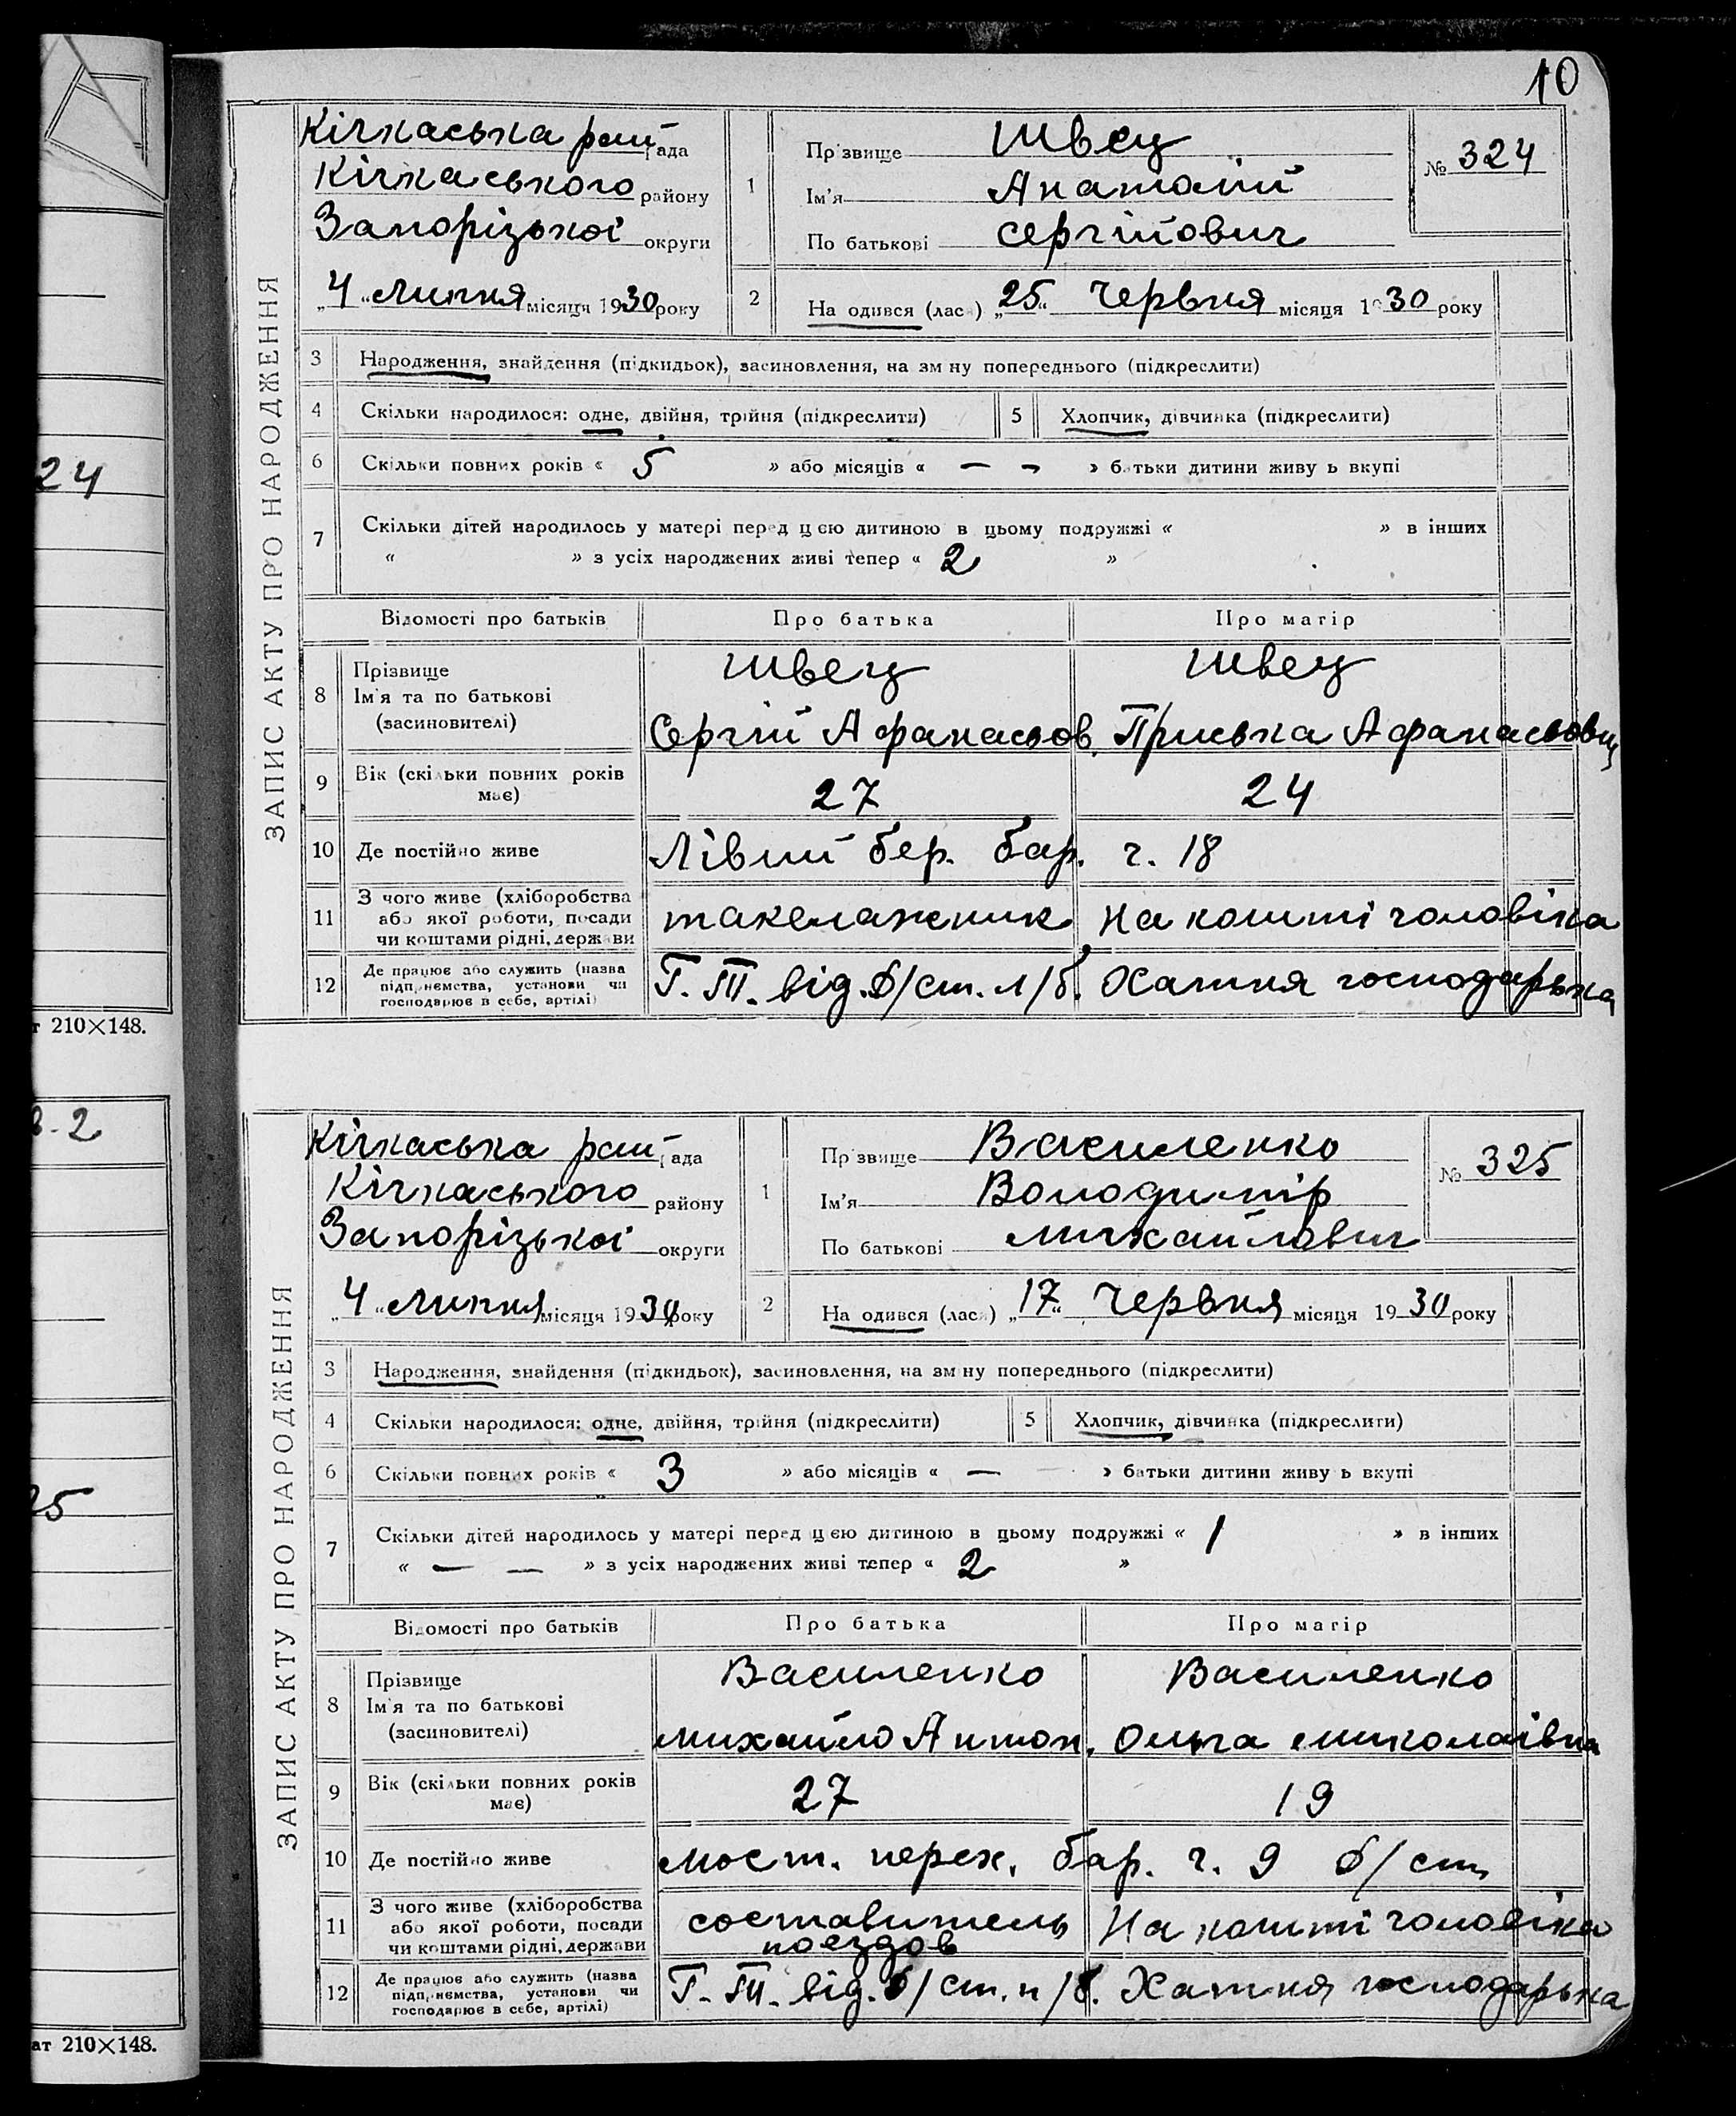 10
24
т 210×148.
в. 2
25
ат 210×148.
ЗАПИС АКТУ ПРО НАРОДЖЕННЯ
Кічкаська рай рада
Кічкаського району
Запорізької округи
„4“ Липня місяця 1930 року
1
Прізвище Швец
Ім'я Анатолій
По батькові Сергійович
№ 324
2
Народився (лась) „25“ Червня місяця 1930 року
3 Народження, знайдення (підкидьок), засиновлення, на зміну попереднього (підкреслити)
4 Скільки народилося: одне, двійня, трійня (підкреслити) 5 Хлопчик, дівчинка (підкреслити)
6 Скільки повних років « 5 » або місяців « — — » батьки дитини живуть вкупі
7 Скільки дітей народилось у матері перед цією дитиною в цьому подружжі « » в інших
« » з усіх народжених живі тепер « 2 »
Відомості про батьків Про батька Про матір
8 Прізвище Швец Швец
Ім'я та по батькові
(засиновителі) Сергій Афанасьов. Приська Афанасьовн
9 Вік (скільки повних років має) 27 24
10 Де постійно живе Лівий бер. бар. ч. 18
11 З чого живе (хліборобства
або якої роботи, посади такелажник На кошті чоловіка
чи коштами рідні, держави
12 Де працює або служить (назва
підприємства, установи чи Г. Т. від. Д/ст. л/б. Хатня господарька
господарює в себе, артілі)
ЗАПИС АКТУ ПРО НАРОДЖЕННЯ
Кічкаська рай рада
Кічкаського району
Запорізької округи
„4“ Липня місяця 1930 року
1
Прізвище Василенко
Ім'я Володимір
По батькові Михайлович
№ 325
2
Народився (лась) „17“ Червня місяця 1930 року
3 Народження, знайдення (підкидьок), засиновлення, на зміну попереднього (підкреслити)
4 Скільки народилося: одне, двійня, трійня (підкреслити) 5 Хлопчик, дівчинка (підкреслити)
6 Скільки повних років « 3 » або місяців « — » батьки дитини живуть вкупі
7 Скільки дітей народилось у матері перед цією дитиною в цьому подружжі « 1 » в інших
« — — » з усіх народжених живі тепер « 2 »
Відомості про батьків Про батька Про матір
8 Прізвище Василенко Василенко
Ім'я та по батькові
(засиновителі) Михайло Антон. Ольга Миколаївна
9 Вік (скільки повних років має) 27 19
10 Де постійно живе Мост. перех. бар. ч. 9 д/ст.
11 З чого живе (хліборобства
або якої роботи, посади составитель На кошті чоловіка
чи коштами рідні, держави поездов
12 Де працює або служить (назва
підприємства, установи чи Г. Т. від. Д/ст. п/б. Хатня господарька
господарює в себе, артілі)